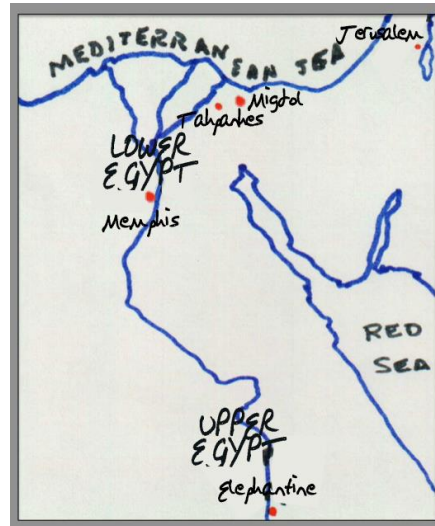 MEDITERRAN EAN SEA
Jerusalem
Migdol
Tahpanhes
LOWER
EGYPT
Memphis
RED
SEA
UPPER
E.GYPT
Elephantine